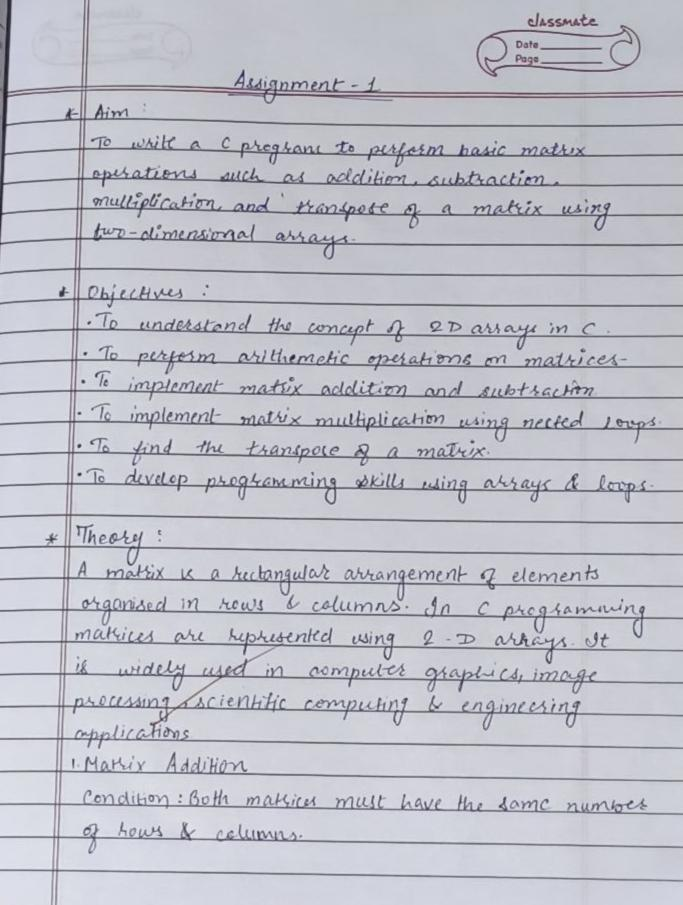 classmate
Date
Page
Assignment - 1
* Aim :
To write a C program to perform basic matrix
operations such as addition, subtraction,
multiplication, and transpose of a matrix using
two-dimensional arrays.
* Objectives :
· To understand the concept of 2D arrays in C.
· To perform arithemetic operations on matrices-
· To implement matrix addition and subtraction
· To implement matrix multiplication using nected loops.
· To find the transpose of a matrix.
· To develop programming skills using arrays & loops.
* Theory :
A matrix is a rectangular arrangement of elements
organised in rows & columns. In C programming
matrices are represented using 2-D arrays. It
is widely used in computer graphics, image
processing, scientific computing & engineering
applications
1. Matrix Addition
Condition : Both matrices must have the same number
of rows & columns.